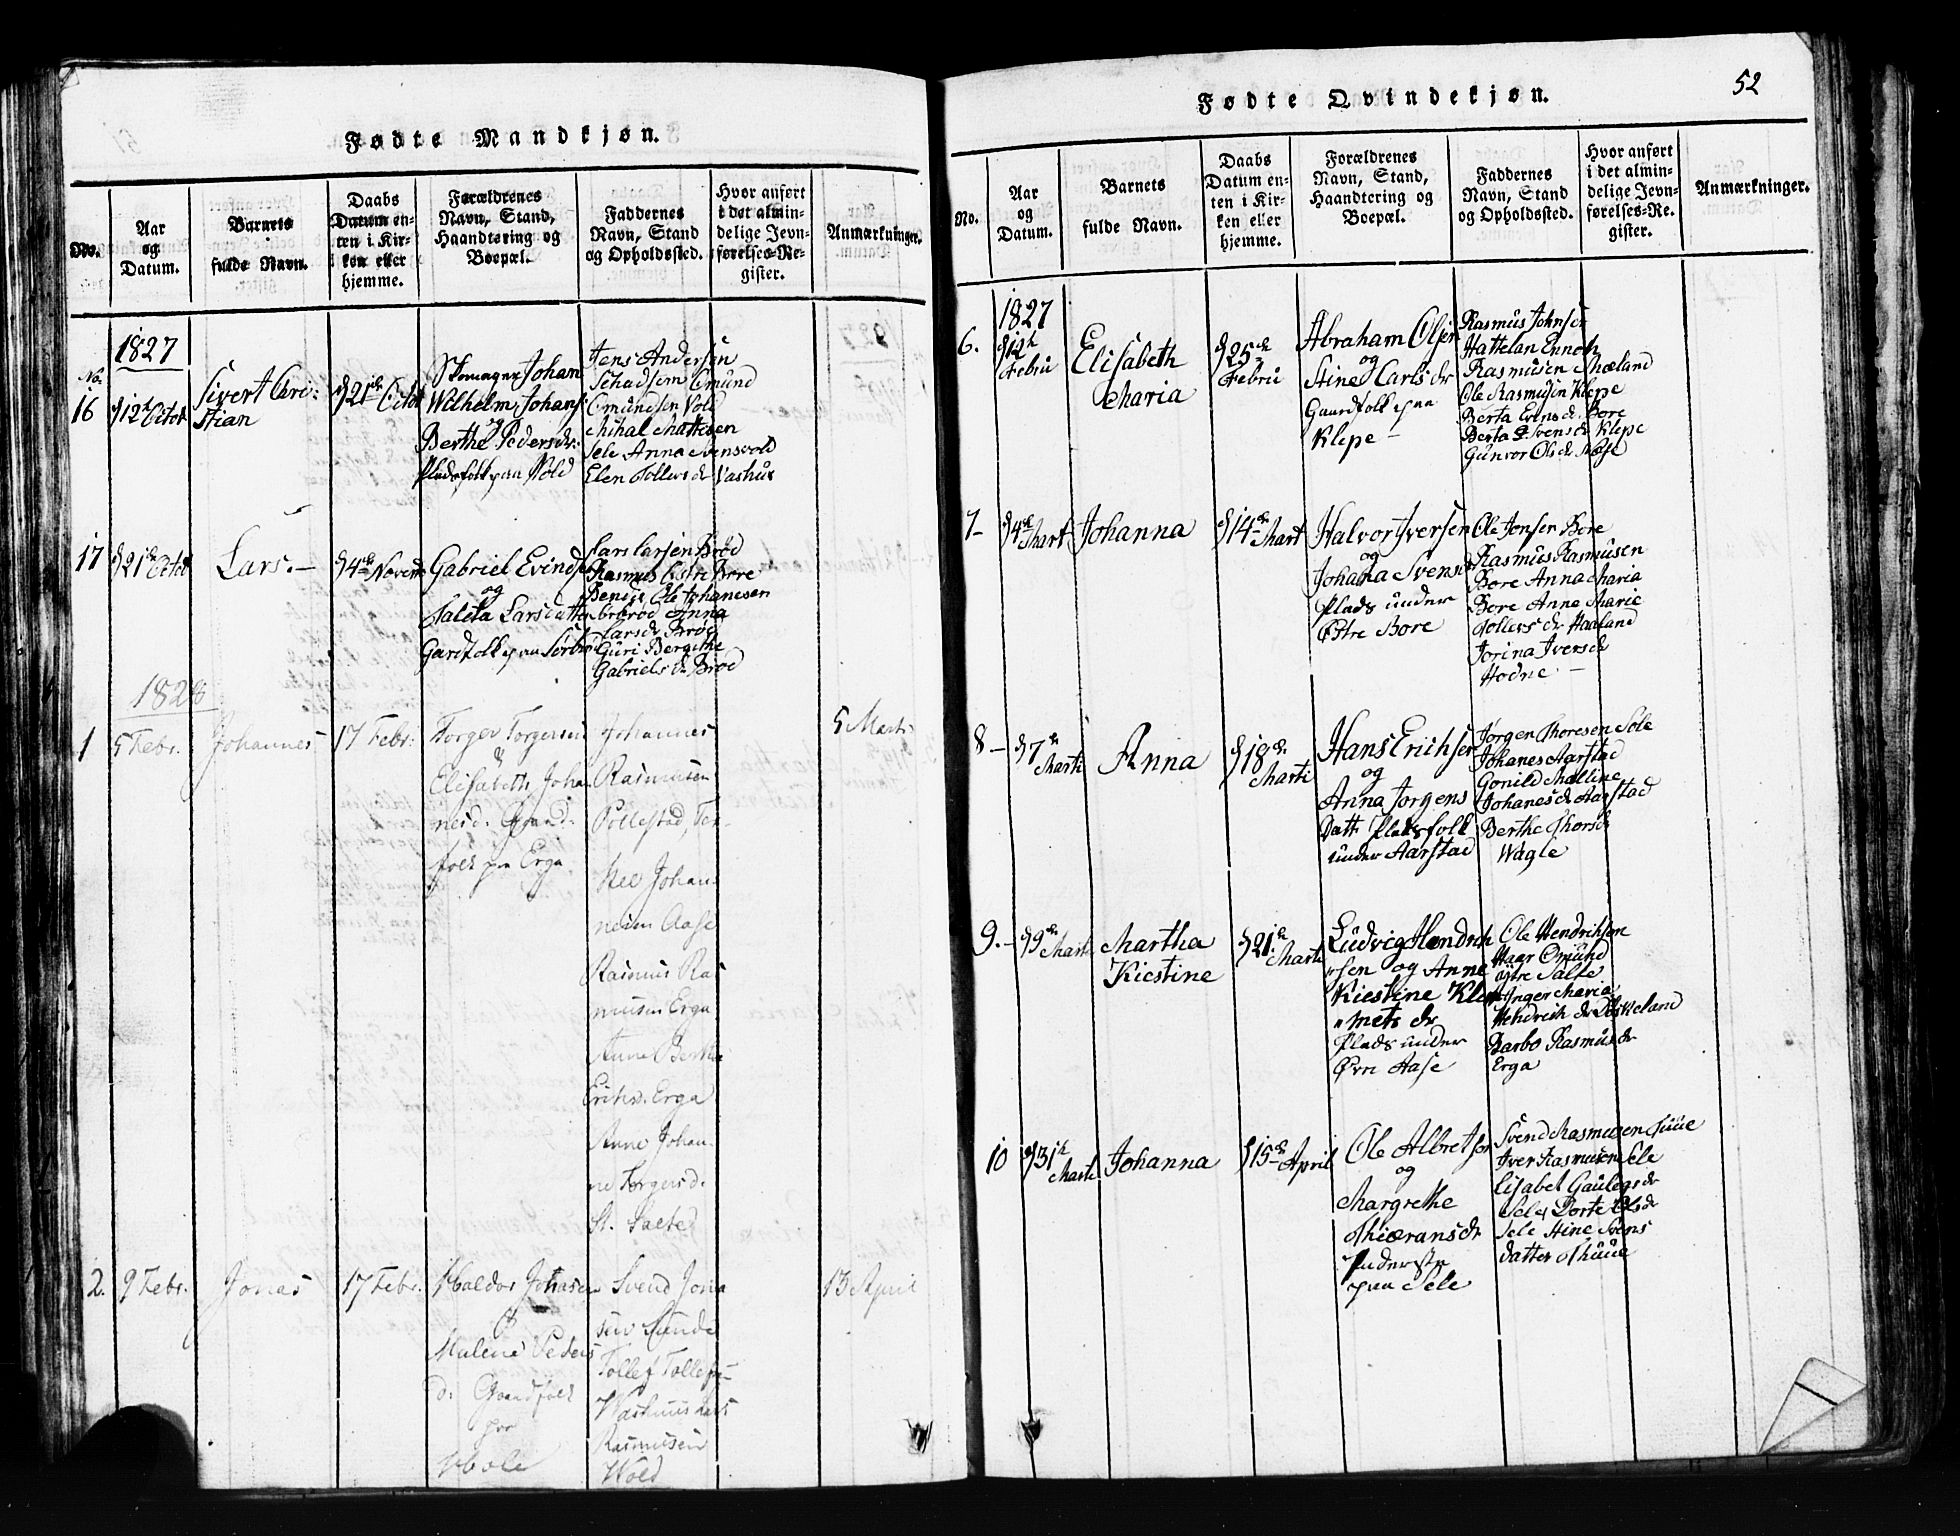 Fødte Mandkjøn.
No.
Aar
og
Datum.
Barnets
fulde Navn.
Daabs
Datum en-
ten i Kir-
ken eller
hjemme.
Forældrenes
Navn, Stand,
Haandtering og
Boepæl.
Faddernes
Navn, Stand
og Opholdssted.
Hvor anført
i det almin-
delige Jevn-
førelses-Re-
gister.
Anmærkninger.
1827
No.
16
12 Octob
Sivert Chri-
stian
21 Octob
Skomager Johan
Wilhelm Johans
og
Berthe Peders dr.
paa Vold
Jens Andersen
Omund
Omundsen Vold
Mihal Mattesen
Sele Anna
Elen Tollevs dr Vashus
17
21 Octob
Lars.—
4 Novemb
Gabriel Evinds
og
Larsdatter
Gardfolk paa Sørbrø
Lars Larsen Brød
Rasmus Estri Bore
Ole Johanesen
Anna
Lars dr Brød
Guri Bergithe
Gabriels dr Brød
1828
1
5 Febr.
Johannes
17 Febr.
Torger Torgersen
&
Elisabeth Johan
nesd. Gaard-
folk paa Erga
Johannes
Rasmusen
Pollestad, Tor-
Johan-
nesen Aase
Rasmus Ras
musen Erga
Anne Berthe
Eriksd. Erga
Anne Johan-
ne Torgersd.
St. Salte
5 Marts
2.
9 Febr.
Jonas
17 Febr.
Haldor Johasen
&
Malene Peders
d. Gaardfolk
paa
Hole
Svend Jona
sen Sunde
Tollef Tollefs-
Washuus Lars
Rasmusen
Wold
13 April
Fødte Qvindekjøn.
52
No.
Aar
og
Datum.
Barnets
fulde Navn.
Daabs
Datum en-
ten i Kir-
ken eller
hjemme.
Forældrenes
Navn, Stand,
Haandtering og
Boepæl.
Faddernes
Navn, Stand
og Opholdssted.
Hvor anført
i det almin-
delige Jevn-
førelses-Re-
gister.
Anmærkninger.
1827
6.
12
Febru
Elisabeth
Maria
25
Febru
Abraham Olsen
og
Stine Carls dr
Gaardfolk paa
Klepe —
Rasmus Johnsen
Hattelan Ennok
Rasmusen Mæland
Ole Rasmusen Klepe
Berta Evens d. Bore
Berta Svens dr Klepe
Gunvor Ols dr
7—
4 Mart
Johanna
14 Mart
Halvor Iversen
og
Johana Svens
Plads under
Østre Bore
Ole Jonsen Bore
Rasmus Rasmusen
Bore Anna Maria
Bore Anne Marie
Tollevs dr Haaland
Jorina Ivers dr
Hodne —
8—
7
Marti
Anna
18
Marti
Hans Erichsen
og
Anna Jorgens
Datt Pladsfolk
under Aarstad
Jørgen Thoresen Sole
Johanes Aarstad
Gonild Malline
Johanes dr Aarstad
Berthe Thors dr
Wagle
9.—
9 Marti
Martha
Kiestine
21
Marti
Ludvig Hendrik
sen og Anne
Kiestine Klem
mets dr
Plads under
Øvre Aase
Ole Hendriksen
Haar Omund
øytre Salte
Inger Maria
Hendrich dr
Barbo Rasmus dr
Erga
10
31
Marti
Johanna
15 April
Ole Albretsen
og
Margrethe
paa Sele
Svend Rasmusen Tuue
Iver Rasmusen Sele
Lisabet Gaulegs dr
Sele Dorte Ols dr
Sele Stine Svens
datter Thuue